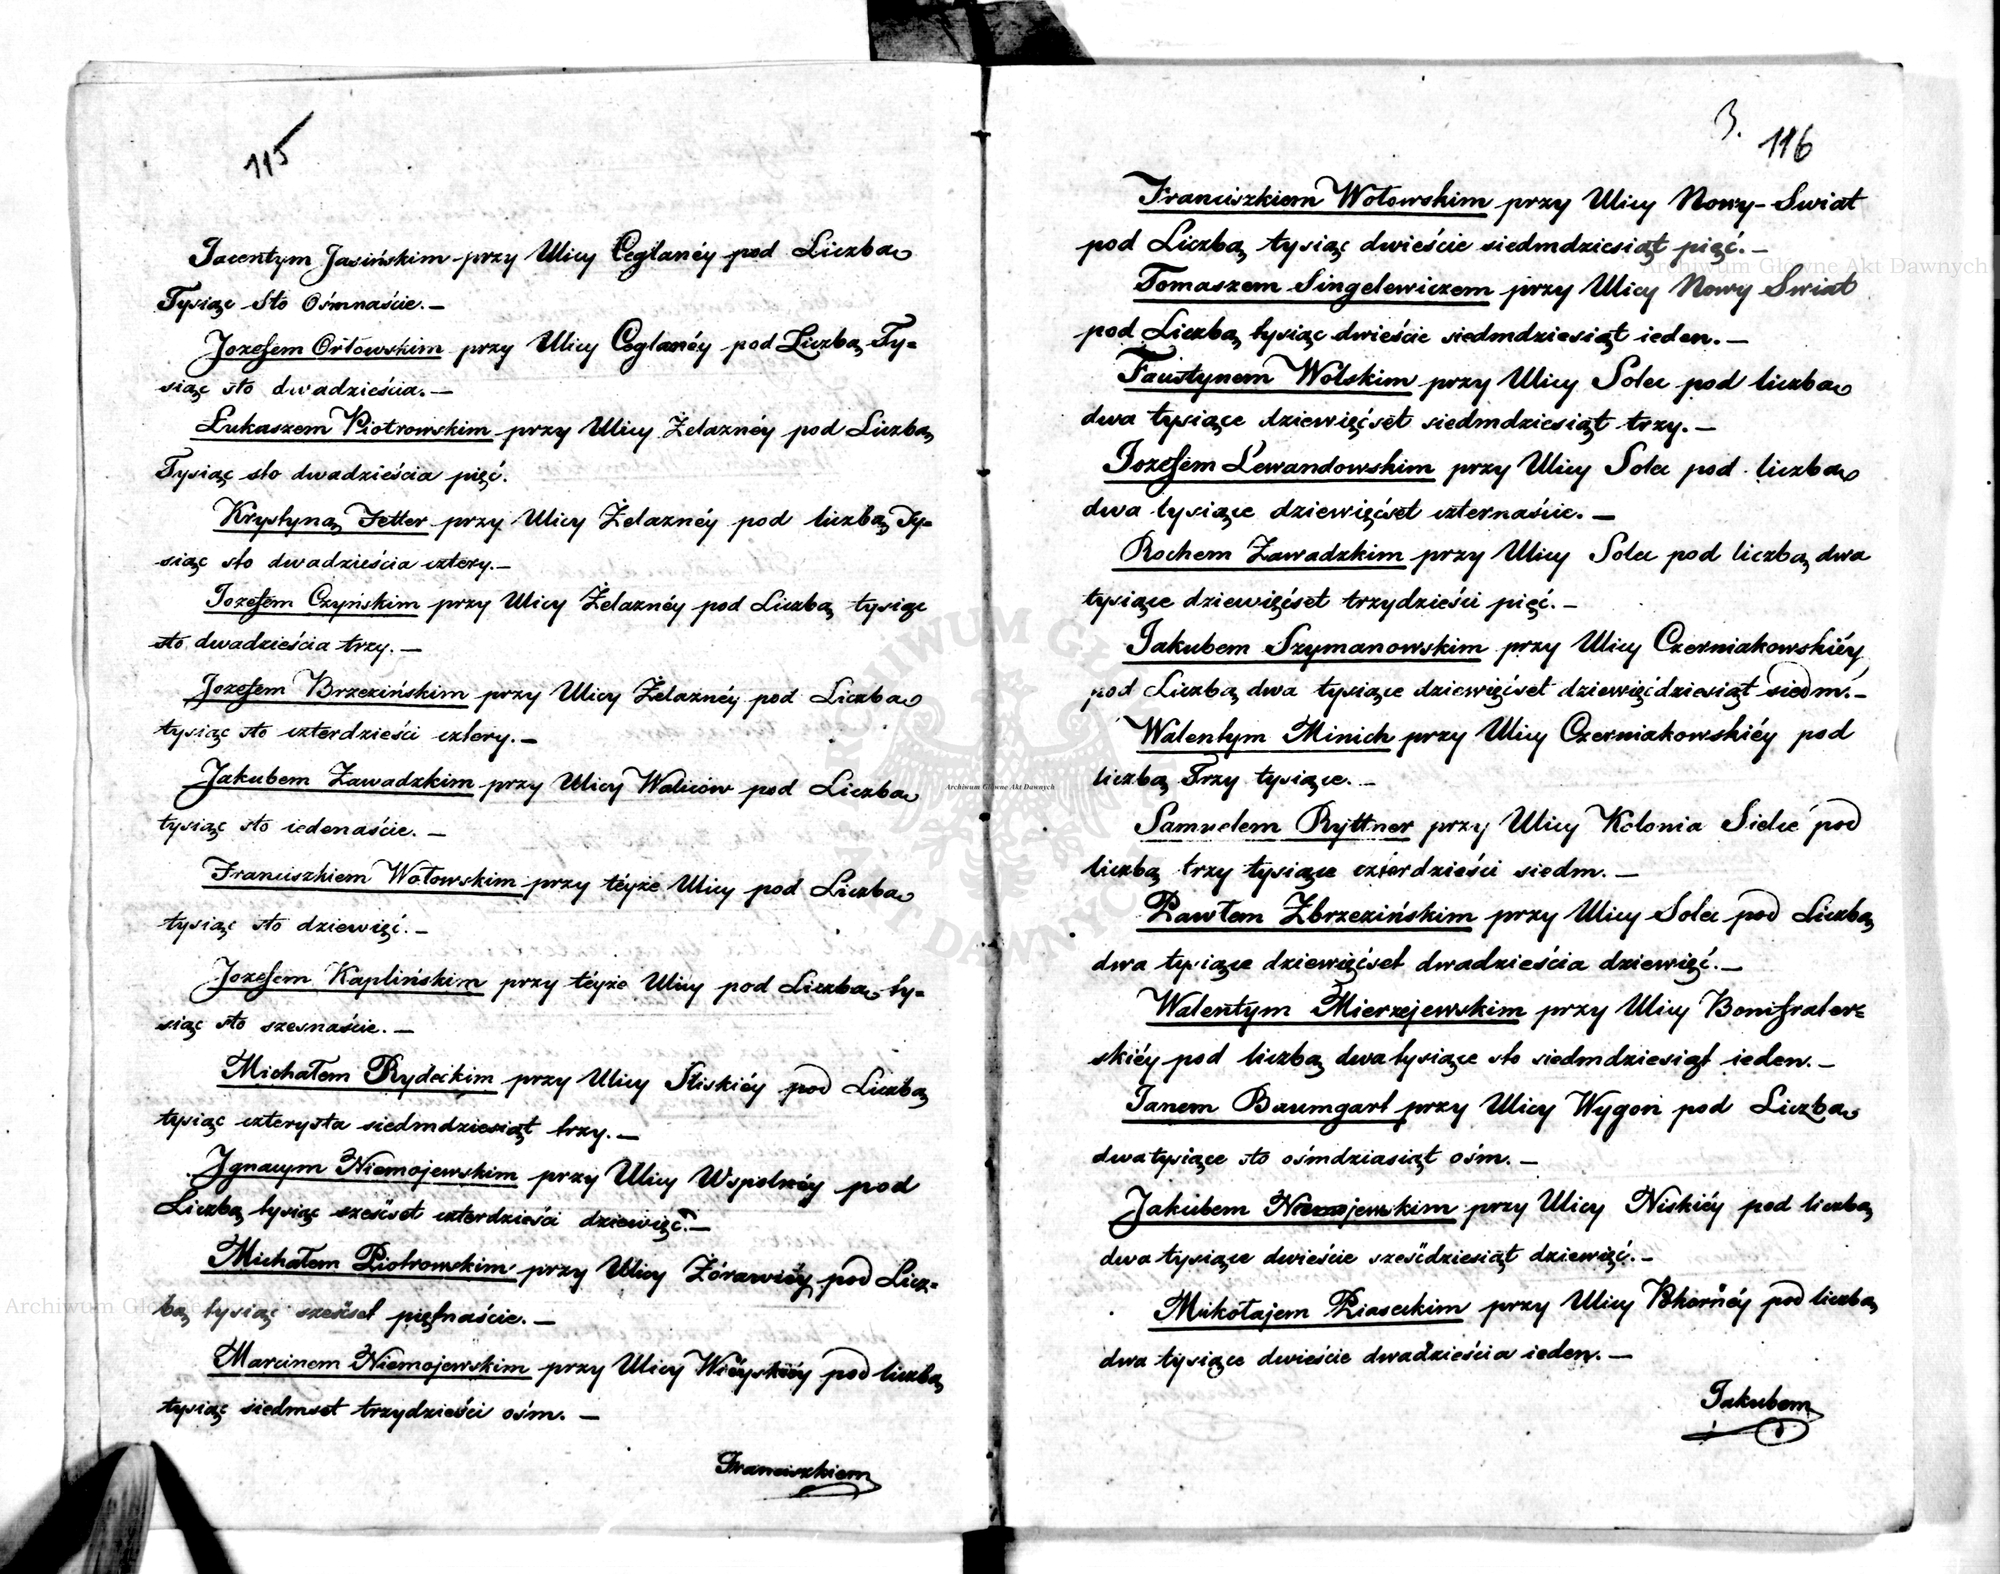 115
Jacentym Jasińskim przy Ulicy Ceglanéy pod Liczbą
Tysiąc Sto Ośmnaście.—
Jozefem Orłowskim przy Ulicy Ceglanéy pod Liczbą Ty=
siąc sto dwadzieścia.—
Łukaszem Piotrowskim przy Ulicy Żelaznéy pod Liczbą
Tysiąc sto dwadzieścia pięć.
Krystyną Fetter przy Ulicy Żelaznéy pod liczbą Ty=
siąc sto dwadzieścia cztery.—
Jozefem Czyńskim przy Ulicy Żelaznéy pod Liczbą tysiąc
sto dwadzieścia trzy.—
Jozefem Brzezińskim przy Ulicy Żelaznéy pod Liczbą
tysiąc sto czterdzieści cztery.—
Jakubem Zawadzkim przy Ulicy Waliców pod Liczbą
tysiąc sto iedenaście.—
Franciszkiem Wołowskim przy téyże Ulicy pod Liczbą
tysiąc sto dziewięć.—
Jozefem Kaplińskim przy téyże Ulicy pod Liczbą ty=
siąc sto szesnaście.—
Michałem Rydeckim przy Ulicy Śliskiéy pod Liczbą
tysiąc czterysta siedmdziesiąt trzy.—
Ignacym Niemojewskim przy Ulicy Wspolnéy pod
Liczbą tysiąc sześćset czterdzieści dziewięć.—
Michałem Piotrowskim przy Ulicy Żórawiéy pod Licz=
bą tysiąc sześćset piętnaście.—
Marcinem Niemojewskim przy Ulicy Wieyskiéy pod liczbą
tysiąc siedmset trzydzieści ośm.—
Franciszkiem
3.
116
Franciszkiem Wołowskim przy Ulicy Nowy-Swiat
pod Liczbą tysiąc dwieście siedmdziesiąt pięć.—
Tomaszem Singelewiczem przy Ulicy Nowy Swiat
pod Liczbą tysiąc dwieście siedmdziesiąt ieden.—
Faustynem Wolskim przy Ulicy Solec pod liczbą
dwa tysiące dziewięćset siedmdziesiąt trzy.—
Jozefem Lewandowskim przy Ulicy Solec pod liczbą
dwa tysiące dziewięćset czternaście.—
Rochem Zawadzkim przy Ulicy Solec pod liczbą dwa
tysiące dziewięćset trzydzieści pięć.—
Jakubem Szymanowskim przy Ulicy Czerniakowskiéy
pod Liczbą dwa tysiące dziewięćset dziewięćdziesiąt siedm.—
Walentym Minich przy Ulicy Czerniakowskiéy pod
liczbą Trzy tysiące.—
Samuelem Ryttner przy Ulicy Kolonia Sielce pod
liczbą trzy tysiące czterdzieści siedm.—
Pawłem Zbrzezińskim przy Ulicy Solec pod Liczbą
dwa tysiące dziewięćset dwadzieścia dziewięć.—
Walentym Mierzejewskim przy Ulicy Bonifrater=
skiéy pod liczbą dwa tysiące sto siedmdziesiąt ieden.—
Janem Baumgart przy Ulicy Wygon pod Liczbą
dwa tysiące sto ośmdziasiąt ośm.—
Jakubem Niemojewskim przy Ulicy Niskiéy pod liczbą
dwa tysiące dwieście sześćdziesiąt dziewięć.—
Mikołajem Piaseckim przy Ulicy Pokornéy pod liczbą
dwa tysiące dwieście dwadzieścia ieden.—
Jakubem
Archiwum Główne Akt Dawnych